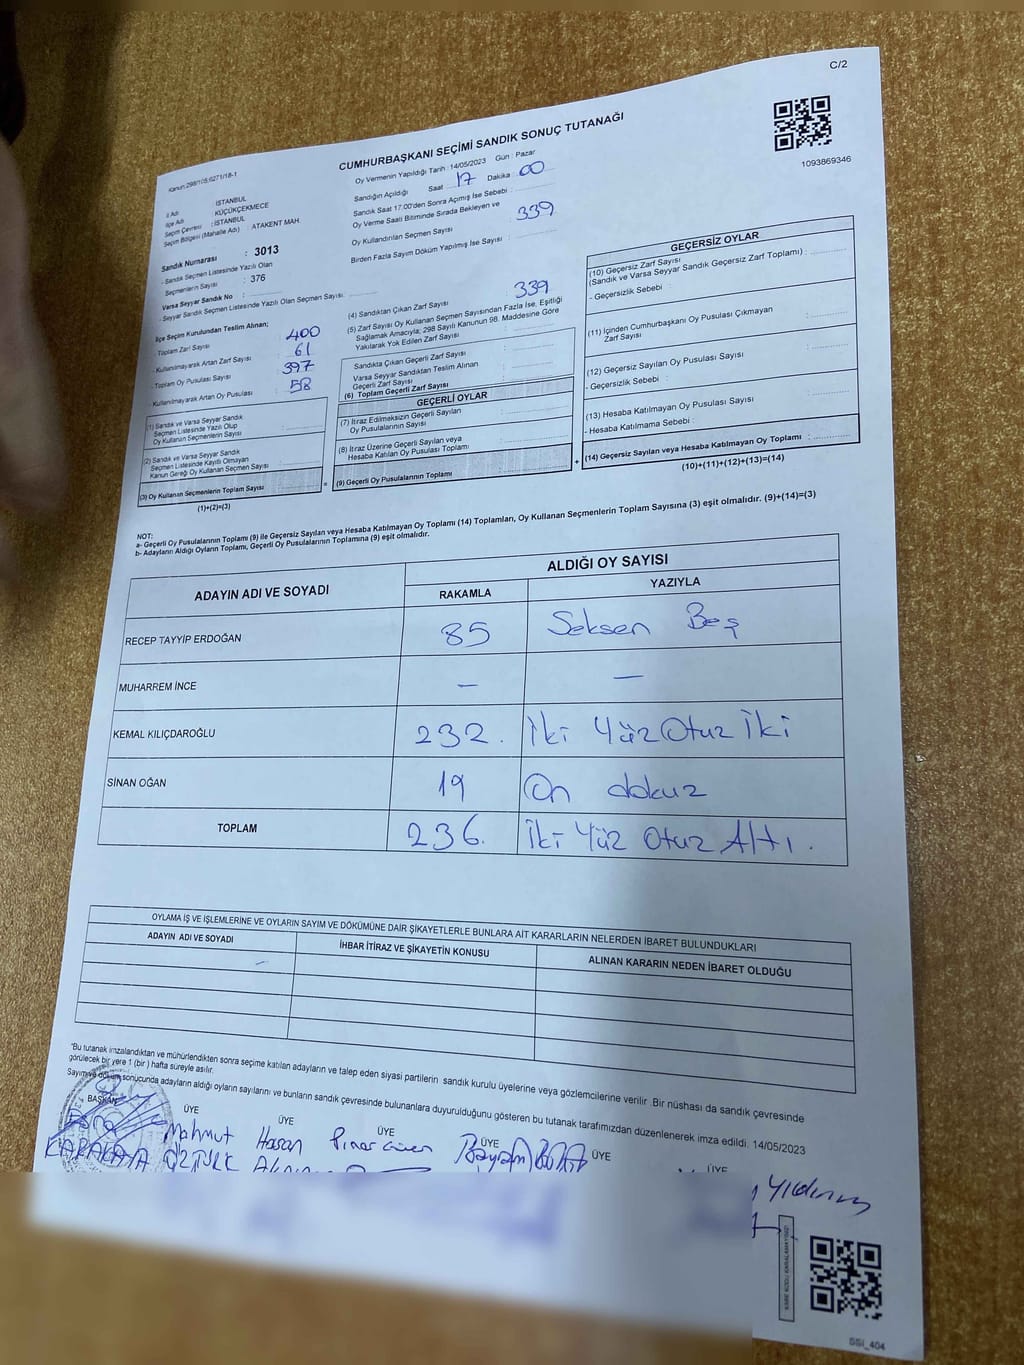 C/2
CUMHURBAŞKANI SEÇİMİ SANDIK SONUÇ TUTANAĞI
1093869346
Kanun:298/105;6271/18-1
İl Adı : İSTANBUL
İlçe Adı : KÜÇÜKÇEKMECE
Seçim Çevresi : İSTANBUL
Seçim Bölgesi (Mahalle Adı) : ATAKENT MAH.
Sandık Numarası : 3013
- Sandık Seçmen Listesinde Yazılı Olan
Seçmenlerin Sayısı : 376
Varsa Seyyar Sandık No :
- Seyyar Sandık Seçmen Listesinde Yazılı Olan Seçmen Sayısı:
İlçe Seçim Kurulundan Teslim Alınan;
- Toplam Zarf Sayısı 400
- Kullanılmayarak Artan Zarf Sayısı 61
- Toplam Oy Pusulası Sayısı 397
- Kullanılmayarak Artan Oy Pusulası 58
(1) Sandık ve Varsa Seyyar Sandık
Seçmen Listesinde Yazılı Olup
Oy Kullanan Seçmenlerin Sayısı :
(2) Sandık ve Varsa Seyyar Sandık
Seçmen Listesinde Kayıtlı Olmayan
Kanun Gereği Oy Kullanan Seçmen Sayısı
(3) Oy Kullanan Seçmenlerin Toplam Sayısı
(1)+(2)=(3)
Oy Vermenin Yapıldığı Tarih :14/05/2023 Gün : Pazar
Sandığın Açıldığı Saat 17 Dakika 00
Sandık Saat 17:00'den Sonra Açımış İse Sebebi :
Oy Verme Saati Bitiminde Sırada Bekleyen ve
Oy Kullandırılan Seçmen Sayısı : 339
Birden Fazla Sayım Döküm Yapılmış İse Sayısı :
(4) Sandıktan Çıkan Zarf Sayısı 339
(5) Zarf Sayısı Oy Kullanan Seçmen Sayısından Fazla İse, Eşitliği
Sağlamak Amacıyla; 298 Sayılı Kanunun 98. Maddesine Göre
Yakılarak Yok Edilen Zarf Sayısı :
Sandıkta Çıkan Geçerli Zarf Sayısı :
Varsa Seyyar Sandıktan Teslim Alınan
Geçerli Zarf Sayısı :
(6) Toplam Geçerli Zarf Sayısı
GEÇERLİ OYLAR
(7) İtiraz Edilmeksizin Geçerli Sayılan
Oy Pusulalarının Sayısı :
(8) İtiraz Üzerine Geçerli Sayılan veya
Hesaba Katılan Oy Pusulası Toplamı :
(9) Geçerli Oy Pusulalarının Toplamı
GEÇERSİZ OYLAR
(10) Geçersiz Zarf Sayısı
(Sandık ve Varsa Seyyar Sandık Geçersiz Zarf Toplamı) :
- Geçersizlik Sebebi :
(11) İçinden Cumhurbaşkanı Oy Pusulası Çıkmayan
Zarf Sayısı :
(12) Geçersiz Sayılan Oy Pusulası Sayısı :
- Geçersizlik Sebebi :
(13) Hesaba Katılmayan Oy Pusulası Sayısı :
- Hesaba Katılmama Sebebi :
(14) Geçersiz Sayılan veya Hesaba Katılmayan Oy Toplamı :
(10)+(11)+(12)+(13)=(14)
NOT:
a- Geçerli Oy Pusulalarının Toplamı (9) ile Geçersiz Sayılan veya Hesaba Katılmayan Oy Toplamı (14) Toplamları, Oy Kullanan Seçmenlerin Toplam Sayısına (3) eşit olmalıdır. (9)+(14)=(3)
b- Adayların Aldığı Oyların Toplamı, Geçerli Oy Pusulalarının Toplamına (9) eşit olmalıdır.
ADAYIN ADI VE SOYADI ALDIĞI OY SAYISI
RAKAMLA YAZIYLA
RECEP TAYYİP ERDOĞAN 85 Seksen Beş
MUHARREM İNCE — —
KEMAL KILIÇDAROĞLU 232. İki Yüz Otuz İki
SİNAN OĞAN 19 On dokuz
TOPLAM 236. İki Yüz Otuz Altı.
OYLAMA İŞ VE İŞLEMLERİNE VE OYLARIN SAYIM VE DÖKÜMÜNE DAİR ŞİKAYETLERLE BUNLARA AİT KARARLARIN NELERDEN İBARET BULUNDUKLARI
ADAYIN ADI VE SOYADI İHBAR İTİRAZ VE ŞİKAYETİN KONUSU ALINAN KARARIN NEDEN İBARET OLDUĞU
"Bu tutanak imzalandıktan ve mühürlendikten sonra seçime katılan adayların ve talep eden siyasi partilerin sandık kurulu üyelerine veya gözlemcilerine verilir .Bir nüshası da sandık çevresinde
görülecek bir yere 1 (bir ) hafta süreyle asılır.
Sayım ve döküm sonucunda adayların aldığı oyların sayılarını ve bunların sandık çevresinde bulunanlara duyurulduğunu gösteren bu tutanak tarafımızdan düzenlenerek imza edildi. 14/05/2023
BAŞKAN ÜYE ÜYE ÜYE ÜYE ÜYE ÜYE
Mahmut Hasan Pınar Güven Bayram Bolat
KARAKAYA ÖZTÜRK
Yıldırım
SSİ_404